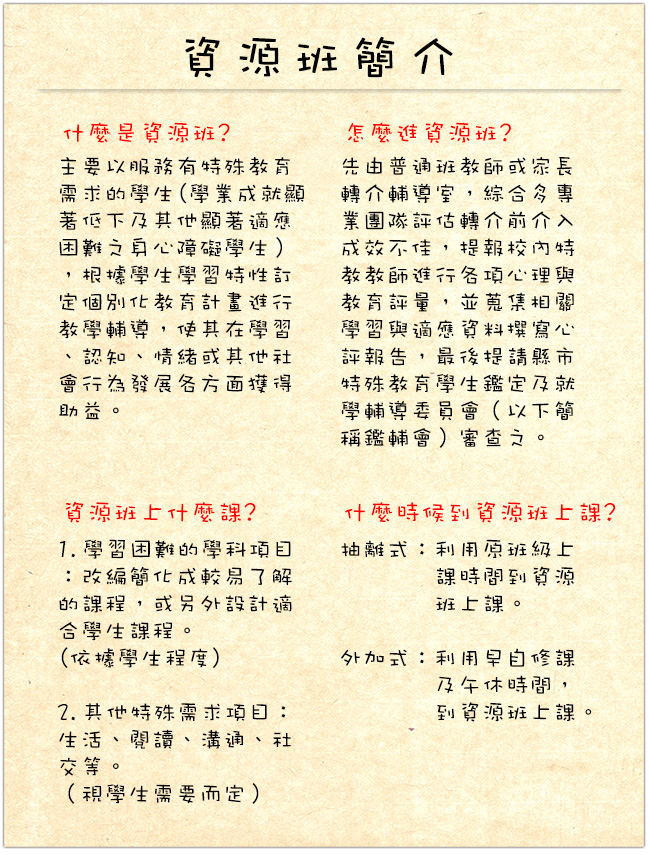 資源班簡介
什麼是資源班?
主要以服務有特殊教育
需求的學生(學業成就顯
著低下及其他顯著適應
困難之身心障礙學生)
，根據學生學習特性訂
定個別化教育計畫進行
教學輔導，使其在學習
、認知、情緒或其他社
會行為發展各方面獲得
助益。
怎麼進資源班?
先由普通班教師或家長
轉介輔導室，綜合多專
業團隊評估轉介前介入
成效不佳，提報校內特
教教師進行各項心理與
教育評量，並蒐集相關
學習與適應資料撰寫心
評報告，最後提請縣市
特殊教育學生鑑定及就
學輔導委員會（以下簡
稱鑑輔會）審查之。
資源班上什麼課?
1.學習困難的學科項目
：改編簡化成較易了解
的課程，或另外設計適
合學生課程。
(依據學生程度)
2.其他特殊需求項目：
生活、閱讀、溝通、社
交等。
（視學生需要而定）
什麼時候到資源班上課?
抽離式：利用原班級上
課時間到資源
班上課。
外加式：利用早自修課
及午休時間，
到資源班上課。